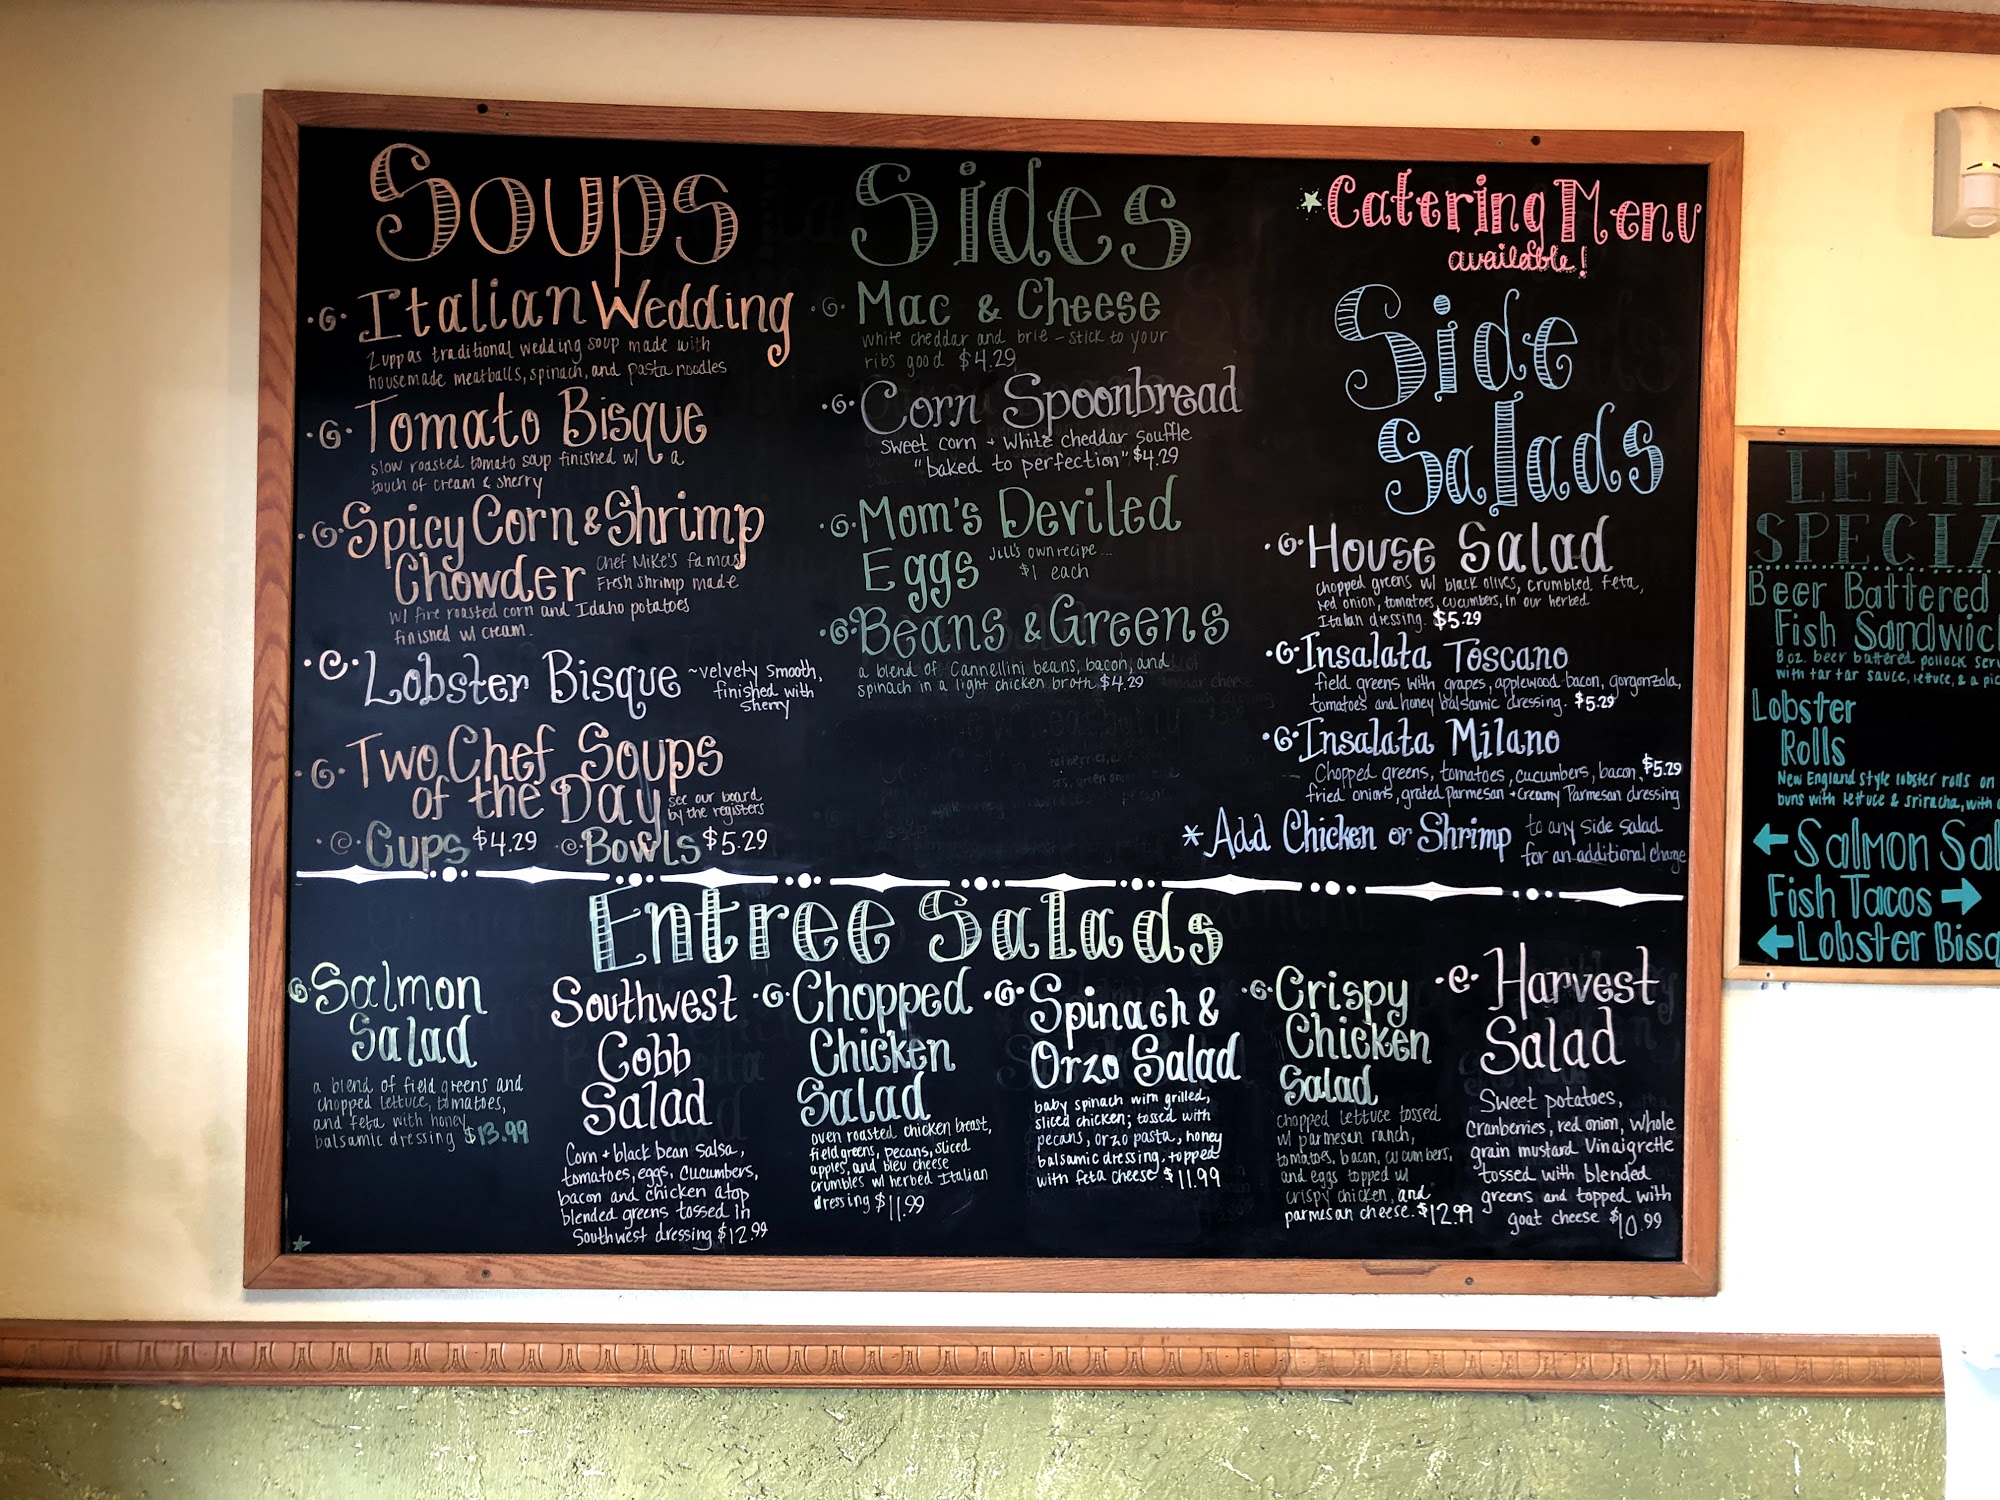 Soups
Italian Wedding
Zuppas traditional wedding soup made with
housemade meatballs, spinach, and pasta noodles
Tomato Bisque
slow roasted tomato soup finished w/ a
touch of cream & sherry
Spicy Corn & Shrimp
Chowder
Chef Mike's famous
Fresh shrimp made
w/ fire roasted corn and Idaho potatoes
finished w/ cream.
Lobster Bisque
~velvety smooth,
finished with
sherry
Two Chef Soups
of the Day
see our board
by the registers
Cups $4.29
Bowls $5.29
Sides
Mac & Cheese
white cheddar and brie - stick to your
ribs good $4.29
Corn Spoonbread
sweet corn + white cheddar souffle
"baked to perfection" $4.29
Mom's Deviled
Eggs
Jill's own recipe...
$1 each
Beans & Greens
a blend of Cannellini beans, bacon, and
spinach in a light chicken broth $4.29
Catering Menu
available!
Side
Salads
House Salad
chopped greens w/ black olives, crumbled feta,
red onion, tomatoes, cucumbers, in our herbed
Italian dressing. $5.29
Insalata Toscano
field greens with grapes, applewood bacon, gorgonzola,
tomatoes and honey balsamic dressing. $5.29
Insalata Milano
Chopped greens, tomatoes, cucumbers, bacon, $5.29
fried onions, grated Parmesan + Creamy Parmesan dressing
*Add Chicken or Shrimp
to any side salad
for an additional charge
Entree Salads
Salmon
Salad
a blend of field greens and
chopped lettuce, tomatoes,
and feta with honey
balsamic dressing $13.99
Southwest
Cobb
Salad
Corn + black bean salsa,
tomatoes, eggs, cucumbers,
bacon and chicken atop
blended greens tossed in
Southwest dressing $12.99
Chopped
Chicken
Salad
oven roasted chicken breast,
field greens, pecans, sliced
apples, and bleu cheese
crumbles w/ herbed Italian
dressing $11.99
Spinach &
Orzo Salad
baby spinach with grilled,
sliced chicken; tossed with
pecans, orzo pasta, honey
balsamic dressing, topped
with feta cheese $11.99
Crispy
Chicken
Salad
chopped lettuce tossed
w/ parmesan ranch,
tomatoes, bacon, cucumbers,
and eggs topped w/
crispy chicken, and
parmesan cheese. $12.99
Harvest
Salad
Sweet potatoes,
Cranberries, red onion, whole
grain mustard Vinaigrette
tossed with blended
greens and topped with
goat cheese $10.99
LENTE
SPECIA
Beer Battered
Fish Sandwic
8 oz. beer battered pollock ser
with tartar sauce, lettuce, & a pic
Lobster
Rolls
New England style lobster rolls on
buns with lettuce & sriracha, with
← Salmon Sal
Fish Tacos →
← Lobster Bisq